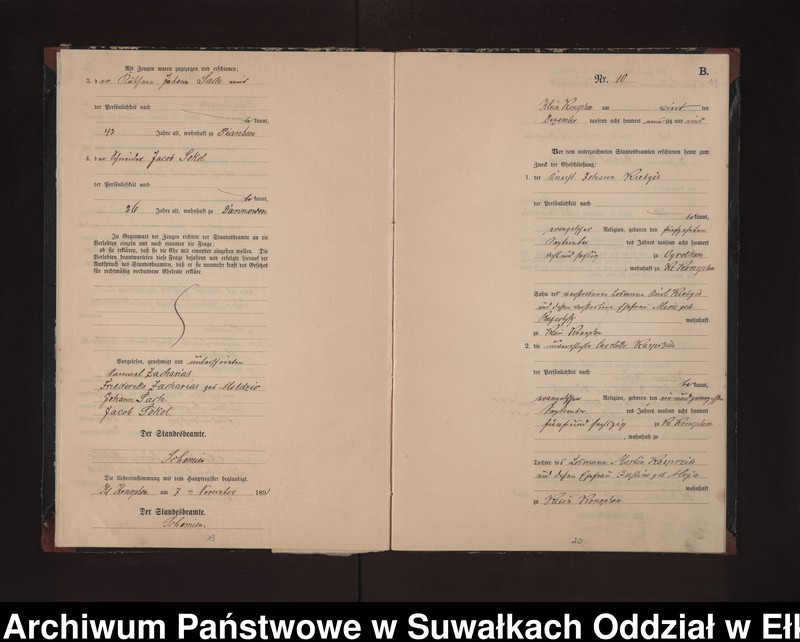 Als Zeugen waren zugezogen und erschienen:
3. der Johann Sack
der Persönlichkeit nach
be kannt,
43 Jahre alt, wohnhaft zu Pianken
4. der Schneider Jacob Sokol
der Persönlichkeit nach
be kannt,
26 Jahre alt, wohnhaft zu Dannowen
In Gegenwart der Zeugen richtete der Standesbeamte an die
Verlobten einzeln und nach einander die Frage:
ob sie erklären, daß sie die Ehe mit einander eingehen wollen. Die
Verlobten beantworteten diese Frage bejahend und erfolgte hierauf der
Ausspruch des Standesbeamten, daß er sie nunmehr kraft des Gesetzes
für rechtmäßig verbundene Eheleute erkläre.
Vorgelesen, genehmigt und unterschrieben
Samuel Zacharias
Friederike Zacharias geb Moldzio
Johann Sack
Jacob Sokol
Der Standesbeamte.
Die Uebereinstimmung mit dem Hauptregister beglaubigt.
Kl am 7 ten November 1891
Der Standesbeamte.
19
B.
Nr. 10
19
Klein am viert ten
Dezember tausend acht hundert neun zig und eins
Vor dem unterzeichneten Standesbeamten erschienen heute zum
Zweck der Eheschließung:
1. der Johann
der Persönlichkeit nach
be kannt,
evangelischer Religion, geboren den fünfzehnten
September des Jahres tausend acht hundert
acht und sechzig zu Ogrodtken
, wohnhaft zu Kl
Sohn des verstorbenen Losmanns
und dessen verstorbene Ehefrau Marie geb
wohnhaft
zu Klein
2. die unverehelichte Charlotte Kasprzik
der Persönlichkeit nach
be kannt,
evangelischer Religion, geboren den ein und zwanzigsten
September des Jahres tausend acht hundert
fünf und sechzig zu Kl
, wohnhaft zu
Tochter des Losmann Martin Kasprzik
und dessen Ehefrau geb
wohnhaft
zu Klein
20
Archiwum Państwowe w Suwałkach Oddział w Eł